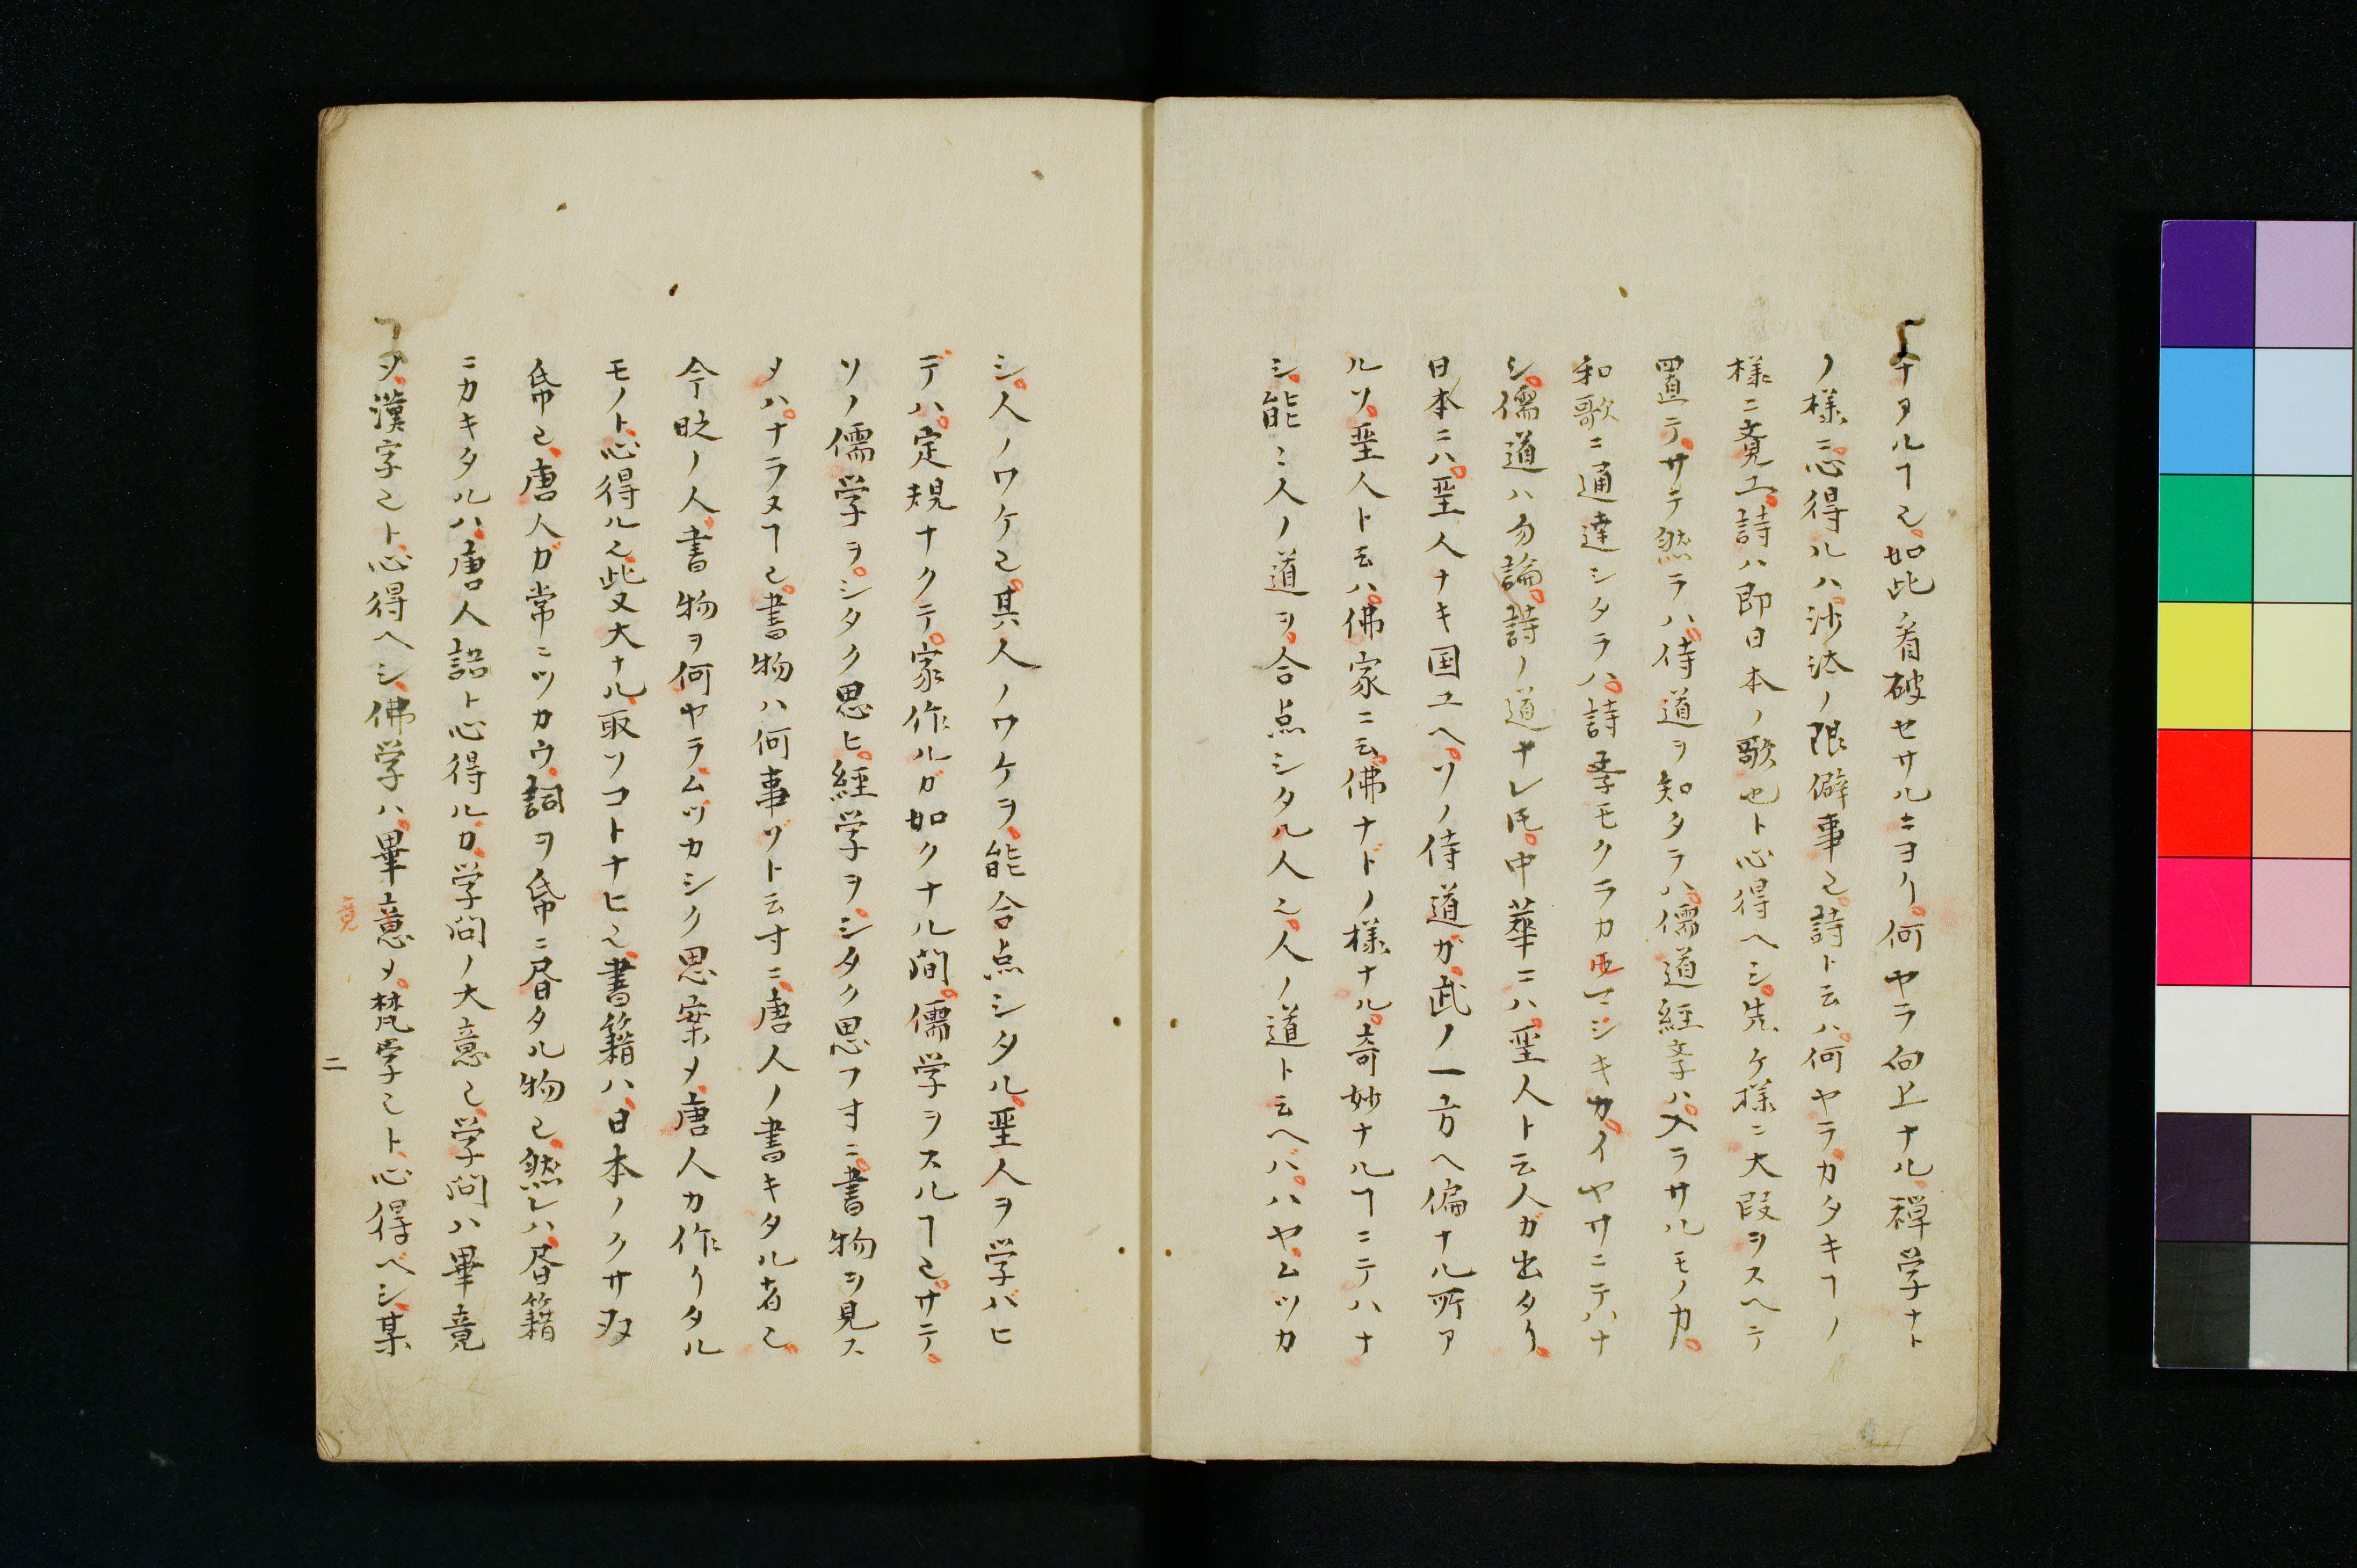 キタルヿ也。如此看破セサルニヨリ。何ヤラ向上ナル。禅学ナト
ノ様ニ。心得ルハ。沙汰ノ限僻事也。詩ト云ハ。何ヤラ。カタキヿノ
様ニ覚ユ。詩ハ即日本ノ歌也ト心得ヘシ。先ケ様ニ大段ヲスヘテ
置テ。サテ然ラハ。侍道ヲ知タラハ。儒道経学ハ。入ラサルモノカ。
和歌ニ通達シタラハ。詩学モクラカルマシキカ。イヤサニテハナ
シ。儒道ハ勿論。詩ノ道ナレ𪜈。中華ニハ。聖人ト云人ガ出タリ。
日本ニハ。聖人ナキ国ユヘ。ソノ侍道ガ。武ノ一方ヘ偏ナル所ア
ルソ。聖人ト云ハ。佛家ニ云。佛ナドノ様ナル。奇妙ナルヿニテハナ
シ。能〻人ノ道ヲ。合点シタル人也。人ノ道ト云ヘバ。ハヤ。ムツカ
シ。人ノワケ也。其人ノワケヲ。能合点シタル。聖人ヲ学バヒ
デハ。定規ナクテ。家作ルガ如クナル間。儒学ヲスルヿ也。サテ。
ソノ儒学ヲ。シタク思ヒ。経学ヲ。シタク思フ寸ニ。書物ヲ見ス
メハ。ナラヌヿ也。書物ハ何事ソト云寸ニ。唐人ノ書キタル者也。
今時ノ人。書物ヲ何ヤラ。ムツカシク思案メ。唐人カ作リタル
モノト。心得ル也。此又大ナル。取ソコトナヒ也。書籍ハ。日本ノクサ双
帋也。唐人ガ常ニツカウ。詞ヲ帋ニ書タル物也。然レハ。書籍
ニカキタルハ。唐人語ト心得ルカ。学問ノ大意也。学問ハ畢竟
ヿヲ。漢字也ト。心得ヘシ。佛学ハ。畢意メ。梵学也ト。心得ベシ。某
竟
二